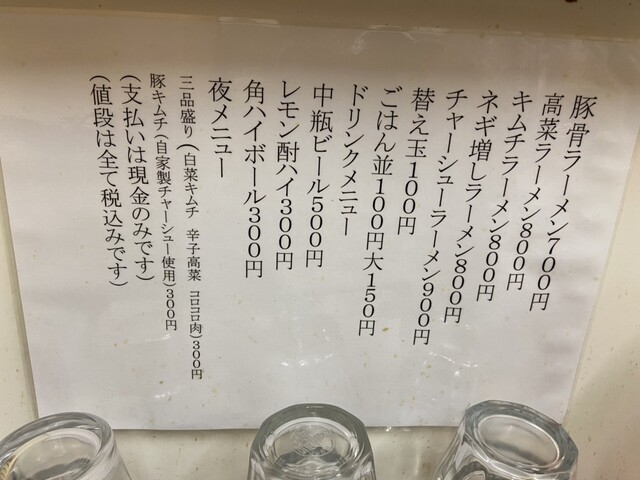 豚骨ラーメン700円
高菜ラーメン800円
キムチラーメン800円
ネギ増しラーメン800円
チャーシューラーメン900円
替え玉100円
ごはん並100円大150円
ドリンクメニュー
中瓶ビール500円
レモン酎ハイ300円
角ハイボール300円
夜メニュー
三品盛り(白菜キムチ 辛子高菜 コロコロ肉)300円
豚キムチ(自家製チャーシュー使用)300円
(支払いは現金のみです)
(値段は全て税込みです)